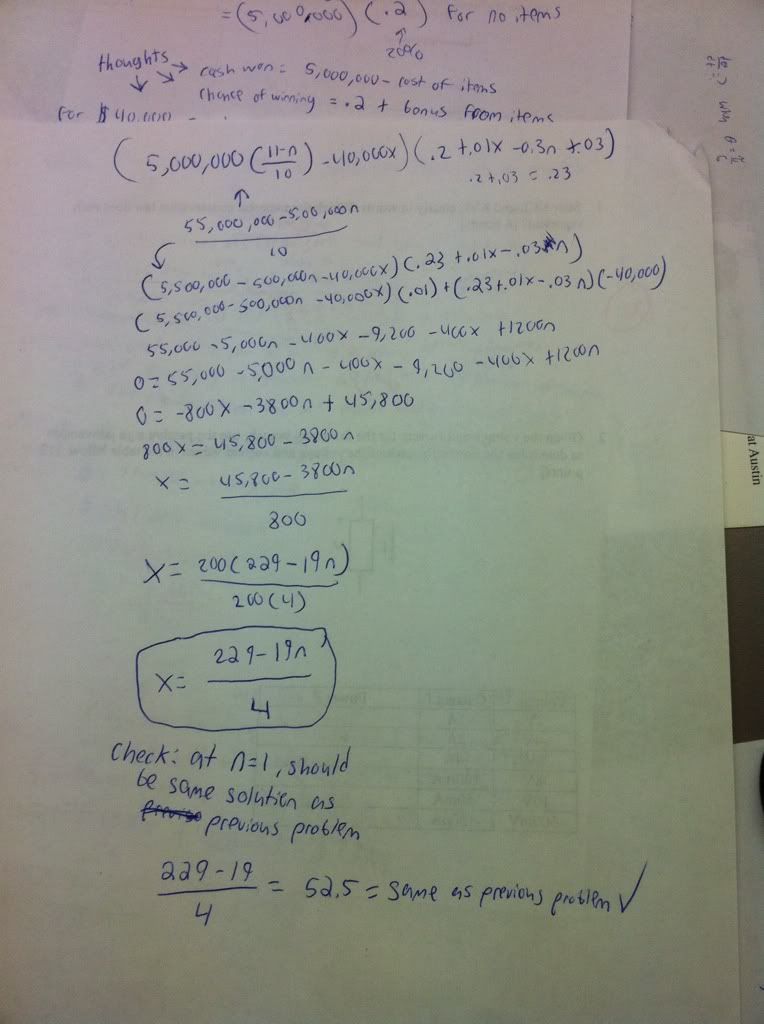 =(5,000,000) (.2) for no items
↑
20%
thoughts → cash won = 5,000,000 - cost of items
chance of winning = .2 + bonus from items
For $40,000 -
(5,000,000 (11-n/10) - 40,000x) (.2 + .01x - 0.3n + .03)
.2 + .03 = .23
↑
55,000,000 - 5,00,000n
10
(5,500,000 - 500,000n - 40,000x) (.23 + .01x - .03n)
(5,500,000 - 500,000n - 40,000x) (.01) + (.23 + .01x - .03n) (-40,000)
55,000 - 5,000n - 400x - 9,200 - 400x + 1200n
0 = 55,000 - 5,000n - 400x - 9,200 - 400x + 1200n
0 = -800x - 3800n + 45,800
800x = 45,800 - 3800n
x = 45,800 - 3800n
800
x = 200(229 - 19n)
200(4)
x = 229 - 19n
4
Check: at n=1, should
be same solution as
previous problem
229 - 19
4
= 52.5 = same as previous problem ✓
at Austin